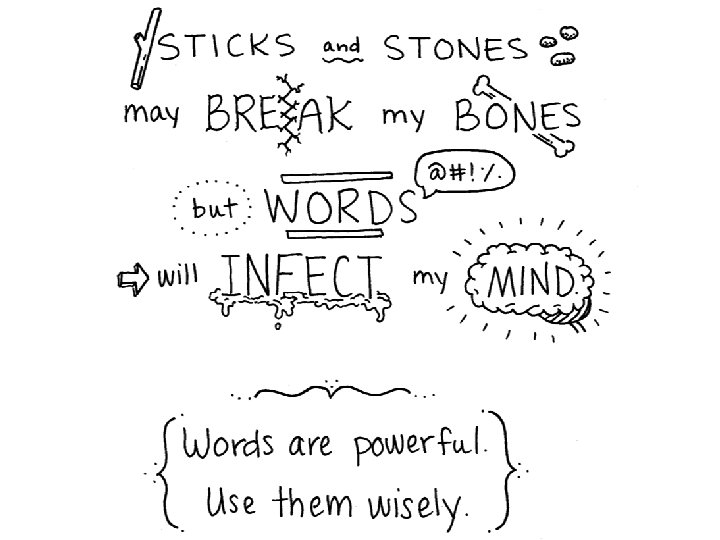 STICKS and STONES
may BREAK my BONES
@#!%
but WORDS
will INFECT my MIND.
Words are powerful.
Use them wisely.